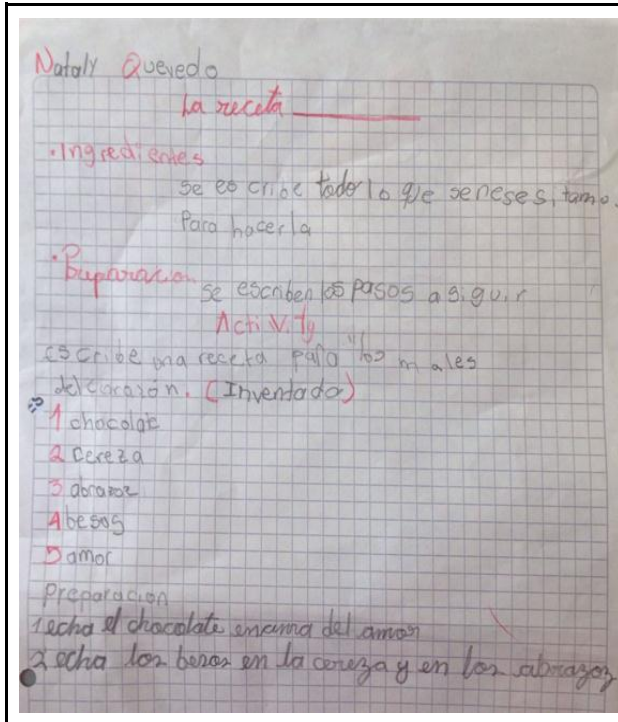 Nataly Quevedo
La receta
. Ingredientes
se escribe todo lo que seneses, tamo.
Para hacerla
. Preparacion
se escriben los pasos a siguir
Activity
escribe una receta para "los males
del corazón. (Inventada)
1 chocolate
2 cereza
3 abrazoz
4 besos
5 amor
Preparacion
1 echa el chocolate encima del amor
2 echa los besos en la cereza y en los abrazoz